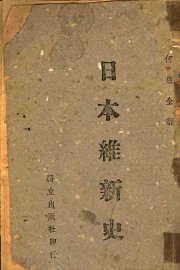 何茲全著
日本維新史
獨立出版社印行